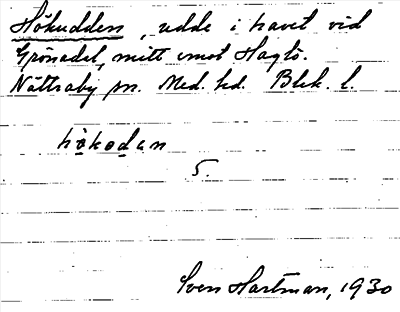 Hökudden, udde i havet vid
Grönadal, mitt emot Haglö.
Nättraby sn. Med. hd. Blek. l.
hökoden
5.
Sven Hartman, 1930